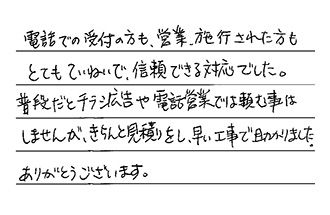 電話での受付の方も、営業、施行された方も
とてもていねいで、信頼できる対応でした。
普段だとチラシ広告や電話営業では頼む事は
しませんが、きちんと見積りをし、早い工事で助かりました。
ありがとうございます。